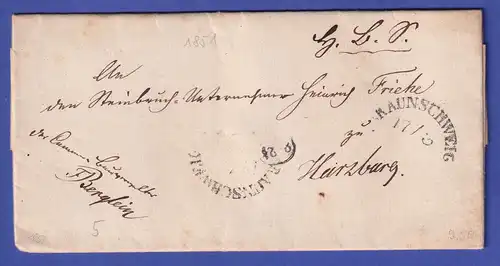 1851
H. L. S.
An
den Steinbruch-Unternehmer Heinrich Fricke
zu
Harzburg.
BRAUNSCHWEIG
17/5
BRAUNSCHWEIG
der Cammer
5